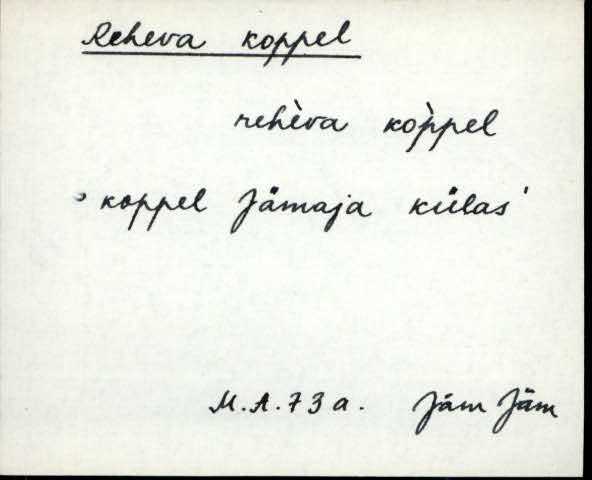 Reheva koppel
rehèva kop̀pel
'koppel Jämaja külas'
M.A.73a. Jäm Jäm